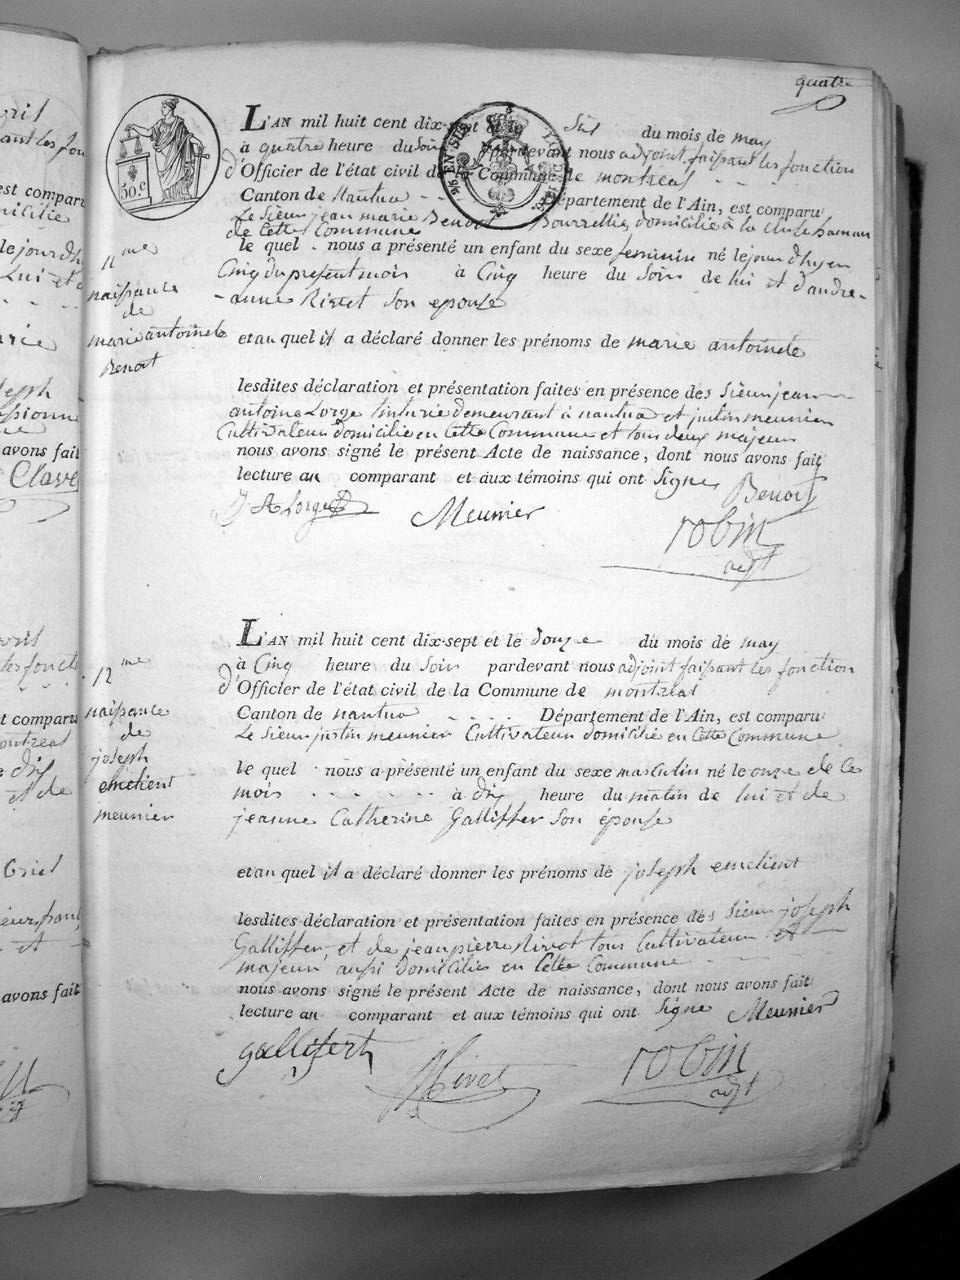 quatre
L'AN mil huit cent dix-sept et le Six du mois de may
à quatre heure du Soir pardevant nous adjoint faisant les fonction
d'Officier de l'état civil de la Commune de montreal
Canton de Nantua - - Département de l'Ain, est comparu
Le Sieur jean marie Benoit Bourrellier domicilié à la
de Cette Commune
le quel - nous a présenté un enfant du sexe feminin né le jour d'hyer
Cinq du présent mois à Cinq heure du Soir de lui et d'andre-
-anne Rivet Son epouse
et au quel il a déclaré donner les prénoms de marie antoinete
lesdites déclaration et présentation faites en présence des Sieur jean
antoine Lorge tinturie demeurant à nantua et justin meunier
Cultivateur domicilié en Cette Commune et tous deux majeur
nous avons signé le présent Acte de naissance, dont nous avons fait
lecture au comparant et aux témoins qui ont Signe Benoit
J A Lorge Meunier
robin
adjt
11me
naissance
de
marie antoinete
Benoit
50 c
L'AN mil huit cent dix-sept et le douze du mois de may
à Cinq heure du Soir pardevant nous adjoint faisant les fonction
d'Officier de l'état civil de la Commune de montreal
Canton de nantua - - - - Département de l'Ain, est comparu
Le Sieur justin meunier Cultivateur domicilié en Cette Commune
le quel - nous a présenté un enfant du sexe masculin né le onze de Ce
mois - - - - - - à dix heure du matin de lui et de
jeanne Catherine Galliffer Son épouse
et au quel il a déclaré donner les prénoms de joseph emelient
lesdites déclaration et présentation faites en présence des Sieur joseph
Galliffer, et de jean pierre Rivet tous Cultivateur et
majeur aussi domicilié en Cette Commune
nous avons signé le présent Acte de naissance, dont nous avons fait
lecture au comparant et aux témoins qui ont Signe Meunier
gallifert Rivet robin
adjt
12me
naissance
de
joseph
emelient
meunier